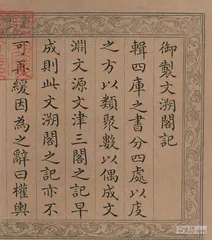 御製文溯閣記
輯四庫之書分四處以庋
之方以類聚數以偶成文
淵文源文津三閣之記早
成則此文溯閣之記亦不
可再緩因為之辭曰權輿